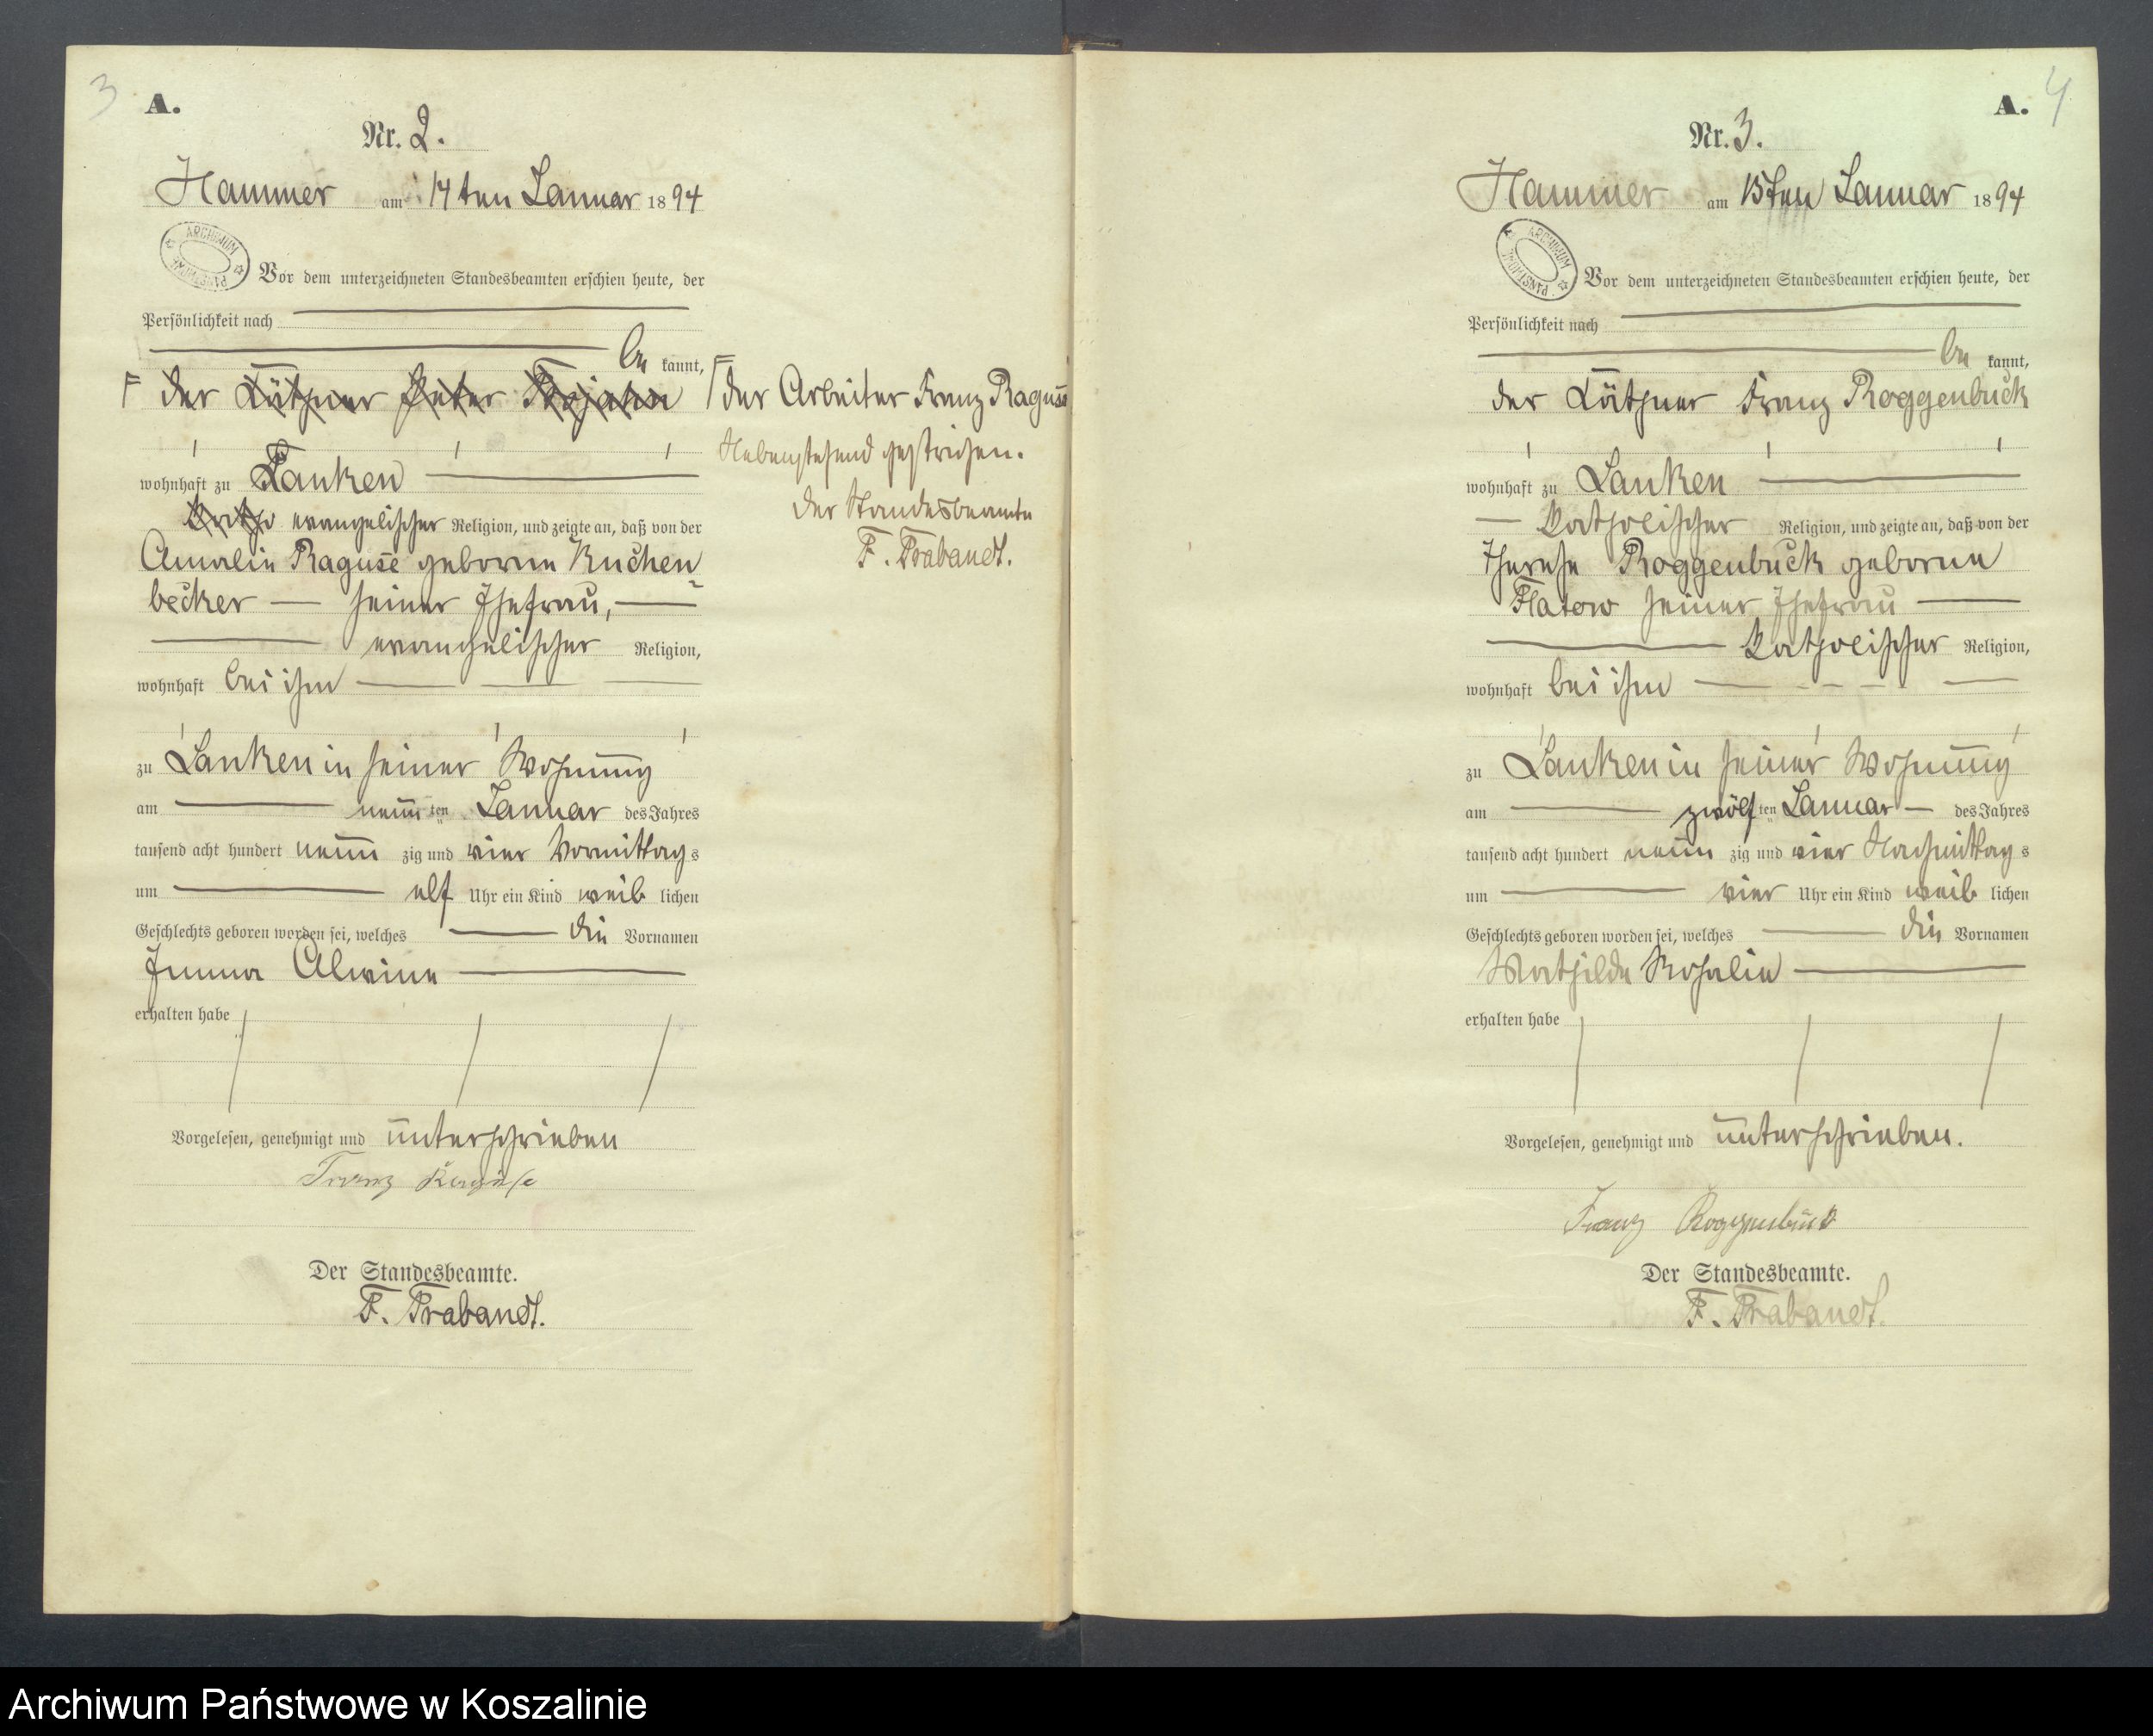 3
A.
Nr. 2.
Hammer am 14ten Januar 1894
ARCHIWUM PAŃSTWOWE
Vor dem unterzeichneten Standesbeamten erschien heute, der
Persönlichkeit nach
be kannt,
der Käthner Peter Trojahn
wohnhaft zu Lanken
katho evangelischer Religion, und zeigte an, daß von der
Amalie Raguse geborne Kuchen
becker seiner Ehefrau,
evangelischer Religion,
wohnhaft bei ihm
zu Lanken in seiner Wohnung
am neun ten Januar des Jahres
tausend acht hundert neun zig und vier Vormittag s
um elf Uhr ein Kind weib lichen
Geschlechts geboren worden sei, welches die Vornamen
Emma Alwine
erhalten habe
Vorgelesen, genehmigt und unterschrieben
Franz Raguse
Der Standesbeamte.
F. Trabandt.
der Arbeiter Franz Raguse
Nebenstehend gestrichen.
Der Standesbeamte
F. Trabandt.
A.
4
Nr. 3.
Hammer am 15ten Januar 1894
ARCHIWUM PAŃSTWOWE
Vor dem unterzeichneten Standesbeamten erschien heute, der
Persönlichkeit nach
be kannt,
der Käthner Franz Roggenbuck
wohnhaft zu Lanken
katholischer Religion, und zeigte an, daß von der
Therese Roggenbuck geborne
Flatow seiner Ehefrau
katholischer Religion,
wohnhaft bei ihm
zu Lanken in seiner Wohnung
am zwölf ten Januar des Jahres
tausend acht hundert neun zig und vier Nachmittag s
um vier Uhr ein Kind weib lichen
Geschlechts geboren worden sei, welches die Vornamen
Mathilde Rosalie
erhalten habe
Vorgelesen, genehmigt und unterschrieben.
Franz Roggenbuck
Der Standesbeamte.
F. Trabandt.
Archiwum Państwowe w Koszalinie